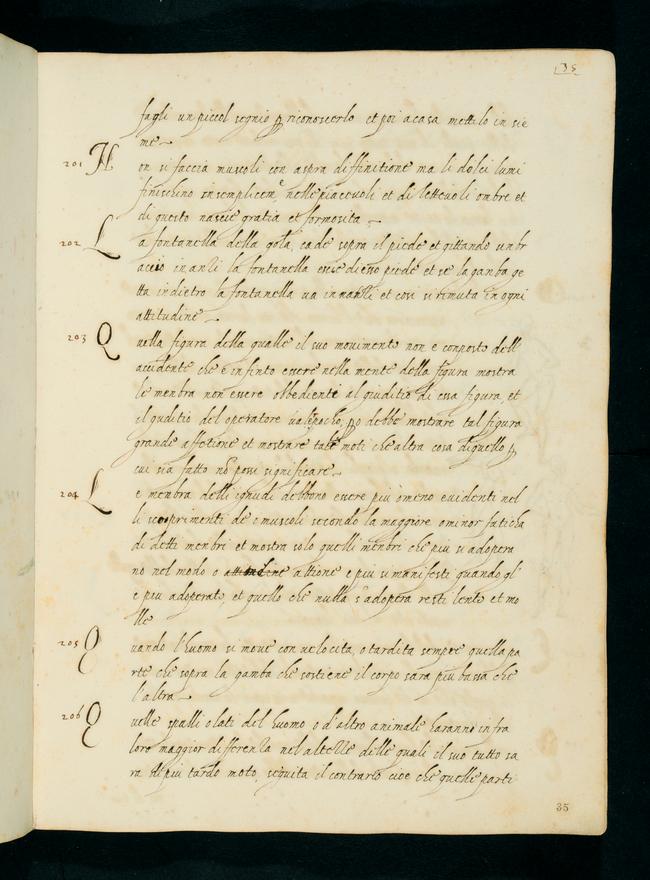 35
fagli un piccol segnio p riconoscerlo et poi a casa mettilo in sie
me
201 N
on si faccia muscoli con aspra diffinitione ma li dolci lumi
finischino insemplicem.e nelle piacevoli et dilettevoli ombre et
di questo nascie gratia et formosita
202 L
a fontanella della gola cade sopra il piede et gittando un br
accio inanzi la fontanella esce di eso piede et se la gamba ge
tta indietro la fontanella va innanzi et cosi si rimuta in ogni
attitudine
203 Q
uella figura della qualle il suo movimento non e conposto dell
accidente che e infinto essere nella mente della figura mostra
le membra non essere obbedienti al giuditio di essa figura, et
il guditio del operatore vale pocho, po debbe mostrare tal figura
grande affetione et mostrare tale moti che altra cosa di quello p
cui sia fatto no possi significare
204 L
e membra delli ignudi debbono essere piu o meno evidenti nel
li scoprimenti de e muscoli secondo la maggiore o minor faticha
di detti menbri et mostra solo quelli menbri che piu si adopera
no nel modo o attione e piu si manifesti quando gl
e piu adoperato, et quello che nulla s adopera resti lente et mo
lle
205 Q
uando l huomo si move con velocita, o tardita sempre quella pa
rte che sopra la gamba che sostiene il corpo sara piu bassa che
l altra
206 Q
uelle spalli o lati del huomo o d altro animale haranno infra
loro maggior differenza nel altezze delle quali il suo tutto sa
ra di piu tardo moto, seguita il contrario cioe che quelle parti
35